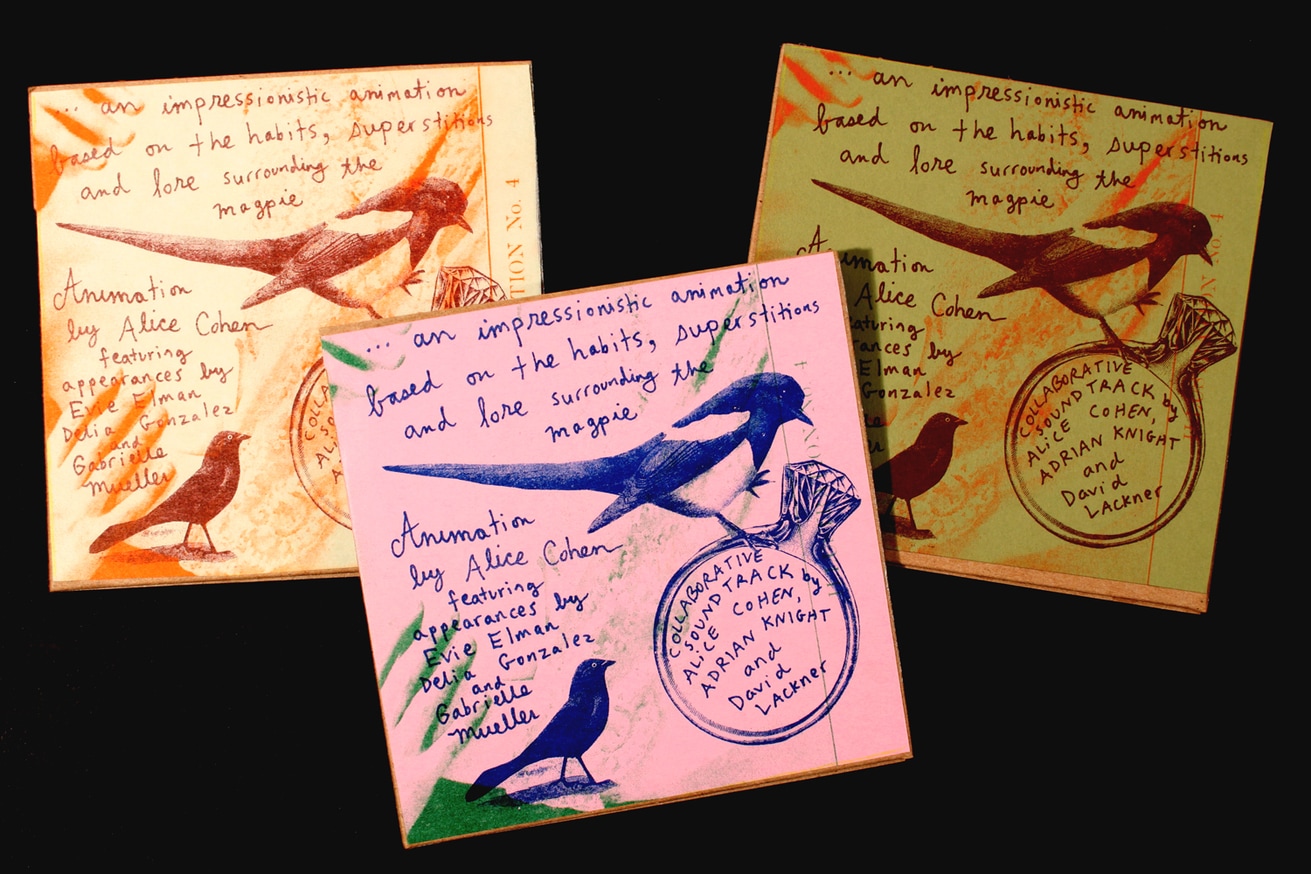 ... an impressionistic animation
based on the habits, superstitions
and lore surrounding the
magpie
TION No. 4
Animation
by Alice Cohen
featuring
appearances by
Evie Elman
Delia Gonzalez
and
Gabrielle
Mueller
... an impressionistic animation
based on the habits, superstitions
and lore surrounding the
magpie
Animation
by Alice Cohen
featuring
appearances by
Evie Elman
Delia Gonzalez
and
Gabrielle
Mueller
COLLABORATIVE
SOUNDTRACK by
ALiCE COHEN,
ADRIAN KNIGHT
and
David
LACKner
... an impressionistic animation
based on the habits, superstitions
and lore surrounding the
magpie
Animation
Alice Cohen
aturing
ances by
Elman
Gonzalez
COLLABORATIVE
SOUNDTRACK by
ALiCE COHEN,
ADRIAN KNIGHT
and
David
LACKner